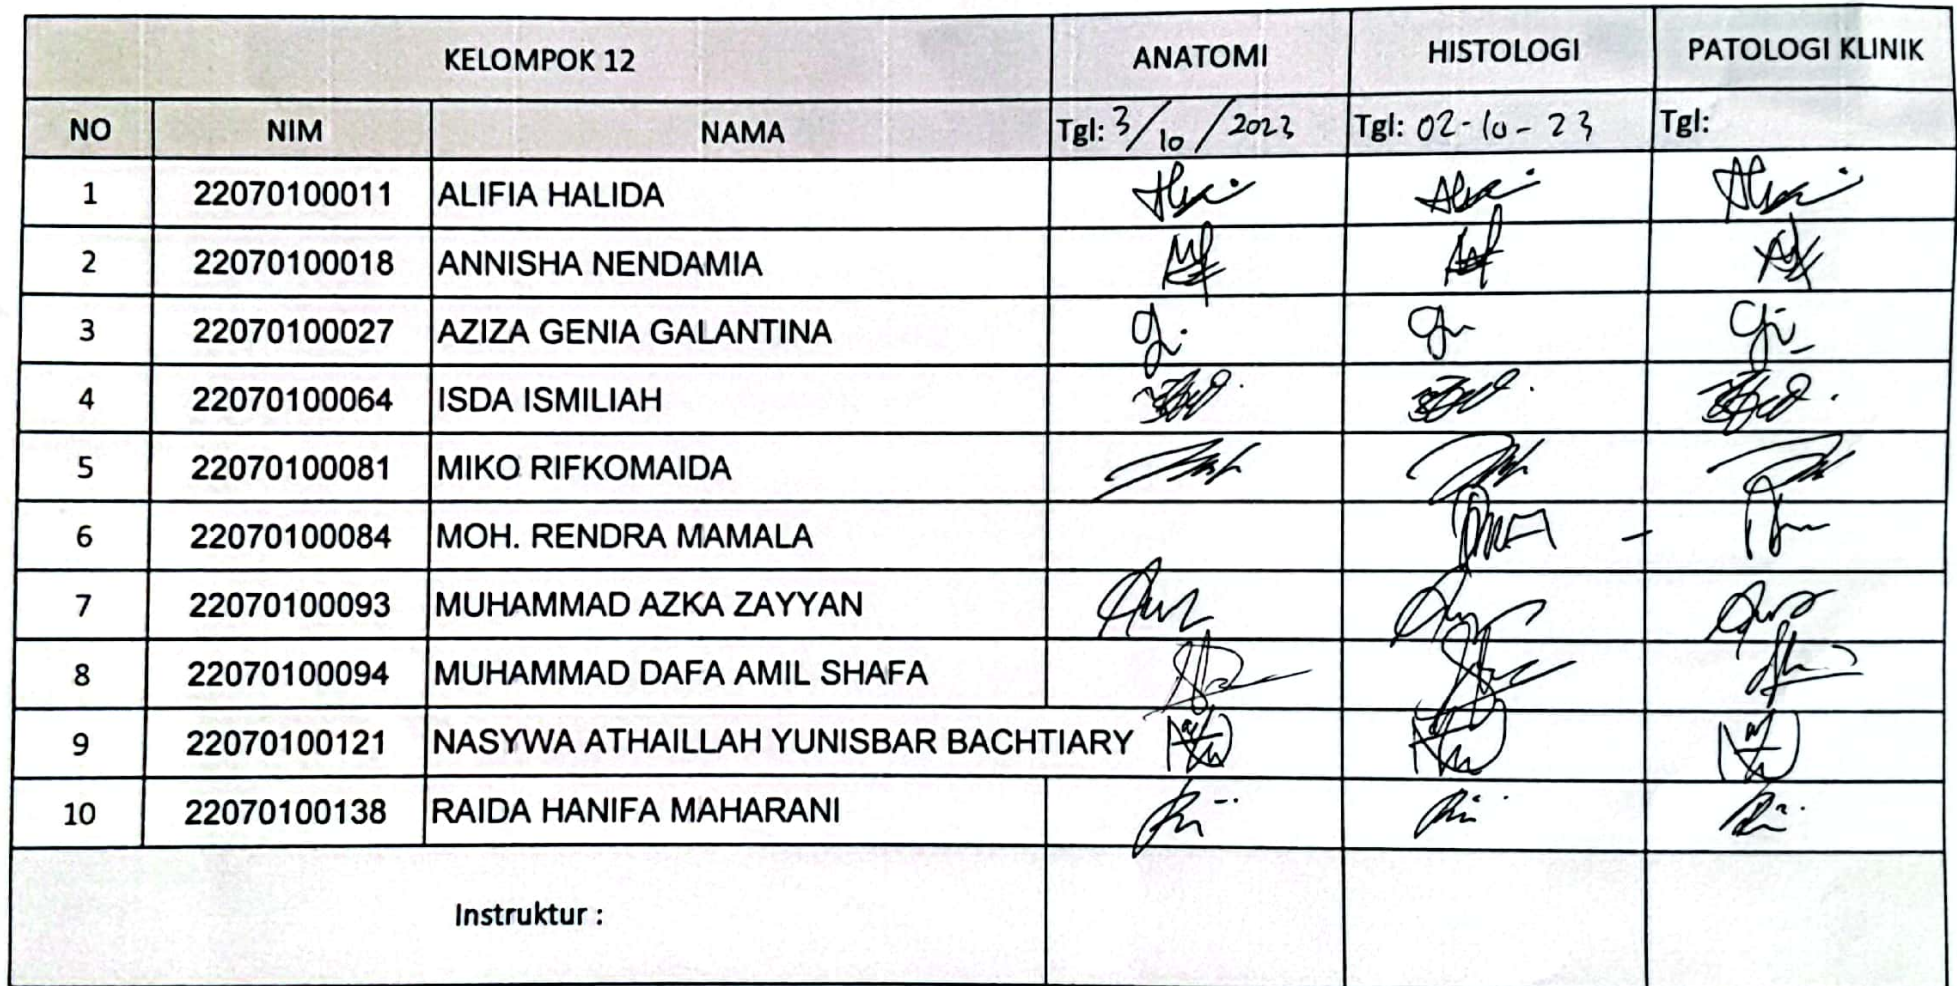 KELOMPOK 12 ANATOMI HISTOLOGI PATOLOGI KLINIK
NO NIM NAMA Tgl: 3/10/2023 Tgl: 02-10-23 Tgl:
1 22070100011 ALIFIA HALIDA
2 22070100018 ANNISHA NENDAMIA
3 22070100027 AZIZA GENIA GALANTINA
4 22070100064 ISDA ISMILIAH
5 22070100081 MIKO RIFKOMAIDA
6 22070100084 MOH. RENDRA MAMALA
7 22070100093 MUHAMMAD AZKA ZAYYAN
8 22070100094 MUHAMMAD DAFA AMIL SHAFA
9 22070100121 NASYWA ATHAILLAH YUNISBAR BACHTIARY
10 22070100138 RAIDA HANIFA MAHARANI
Instruktur :